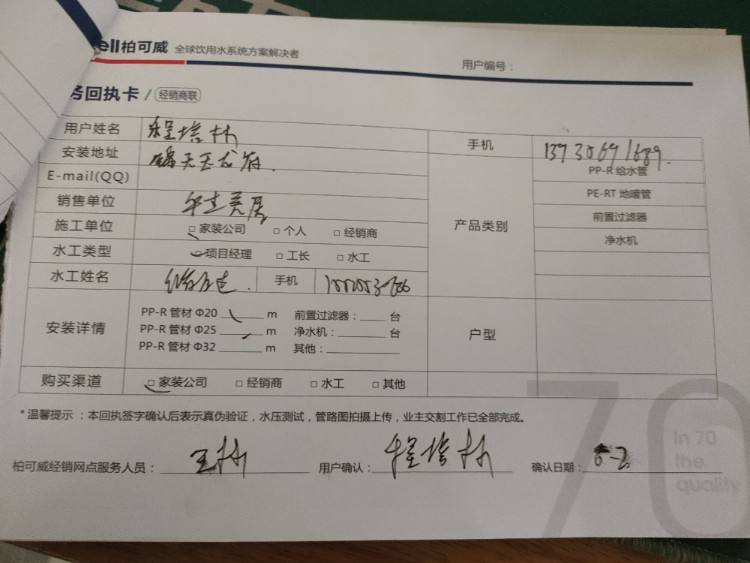 ell柏可威 全球饮用水系统方案解决者
用户编号：
务回执卡 / 经销商联
用户姓名 程培林
手机 13730691689
安装地址
PP-R 给水管
E-mail(QQ)
PE-RT 地暖管
销售单位
产品类别
前置过滤器
施工单位 □家装公司 □个人 □经销商
净水机
水工类型 项目经理 □工长 □水工
水工姓名 手机
安装详情
PP-R 管材 Φ20 m 前置过滤器： 台
PP-R 管材 Φ25 m 净水机： 台
PP-R 管材 Φ32 m 其他：
户型
购买渠道 □家装公司 □经销商 □水工 □其他
*温馨提示：本回执签字确认后表示真伪验证，水压测试，管路图拍摄上传，业主交割工作已全部完成。
70
In 70
the
quality
柏可威经销网点服务人员： 王林 用户确认： 程培林 确认日期：